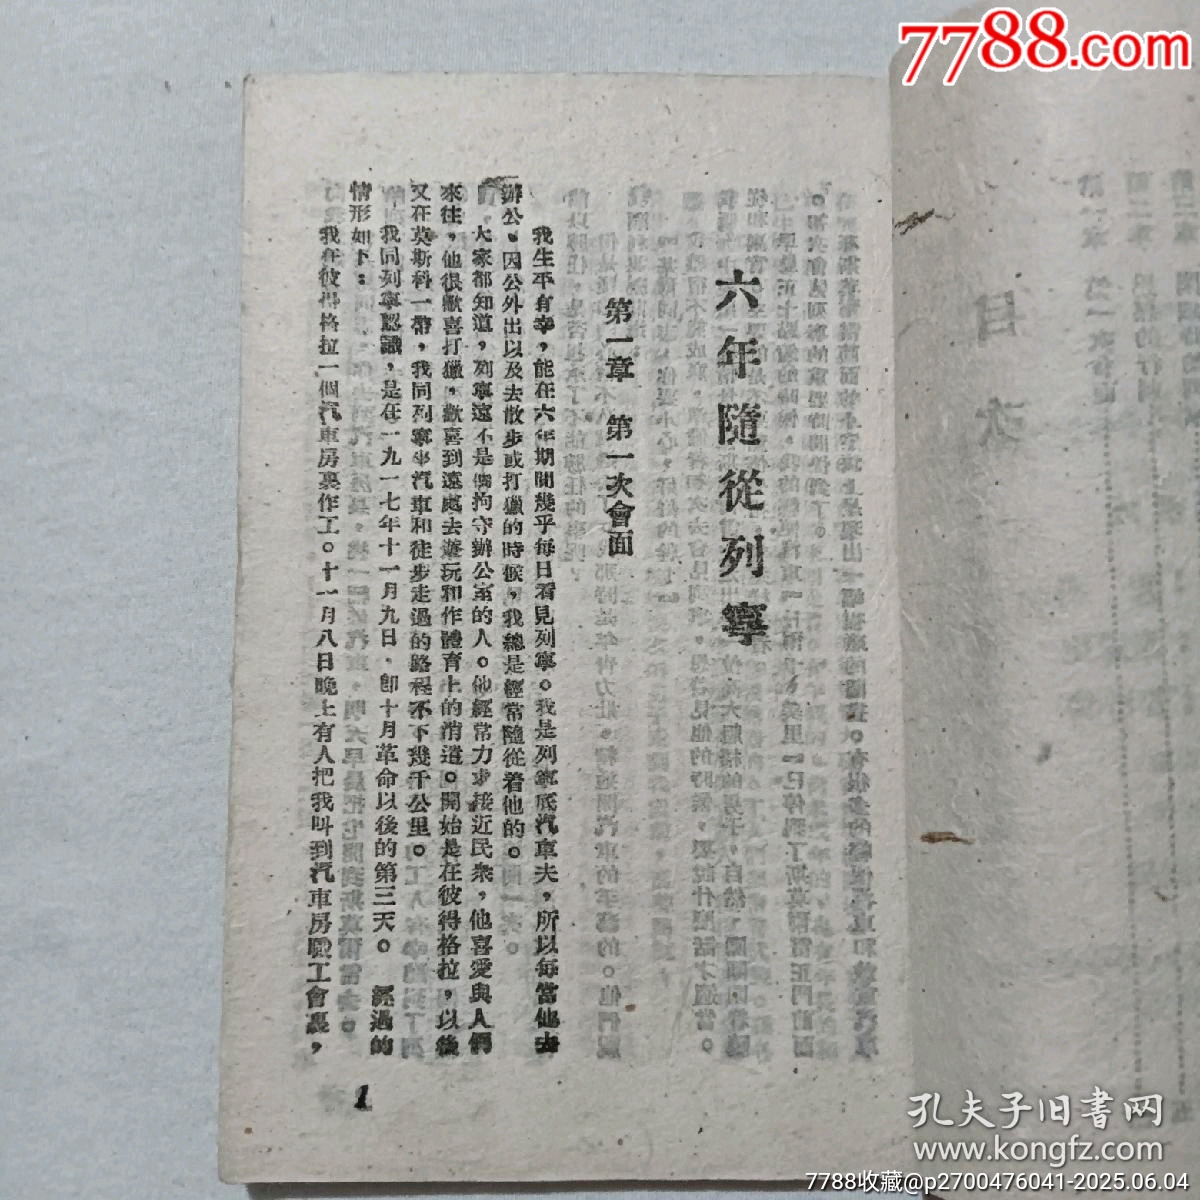 7788.com
六年隨從列寧
第一章 第一次會面
我生平有幸，能在六年期間幾乎每日看見列寧。我是列寧底汽車夫，所以每當他去
辦公。因公外出以及去散步或打獵的時候，我總是經常隨從着他的。
大家都知道，列寧遠不是個拘守辦公室的人。他經常力求接近民衆，他喜愛與人們
來往，他很歡喜打獵，歡喜到遠處去遊玩和作體育上的消遣。開始是在彼得格拉，以後
又在莫斯科一帶，我同列寧坐汽車和徒步走過的路程不下幾千公里。
我同列寧認識，是在一九一七年十一月九日，卽十月革命以後的第三天。經過的
情形如下：
我在彼得格拉一個汽車房裏作工。十一月八日晚上有人把我叫到汽車房職工會裏，
1
目次
孔夫子旧书网
www.kongfz.com
7788收藏@p2700476041-2025.06.04